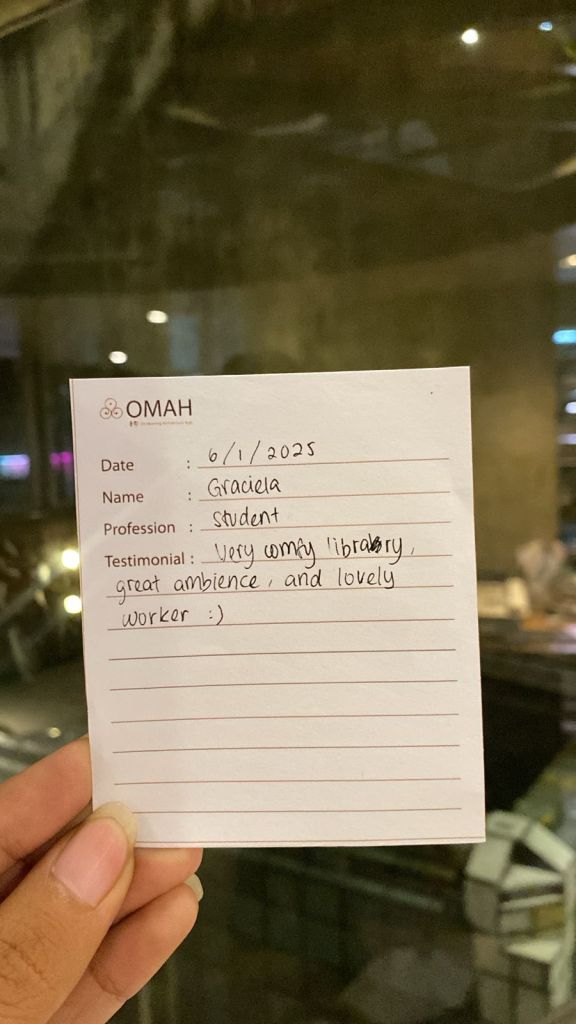 OMAH
Date : 6/1/2025
Name : Graciela
Profession : Student
Testimonial : Very comfy library,
great ambience, and lovely
worker :)